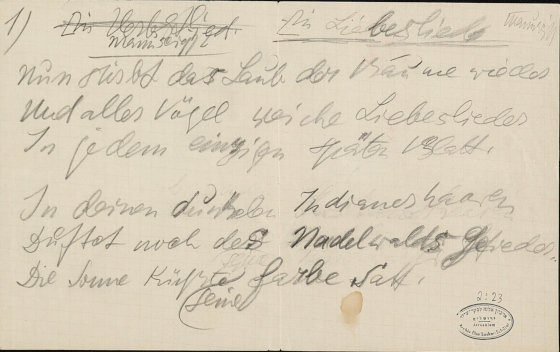 1) Ein Herbstlied. Ein Liebeslied
Manuscript
Nun stirbt das Laub der Bäume wieder
Und alles Vögel weiche Liebeslieder
In jedem einzigen späten Blatt.
In deinen dunkelen Indianerhaaren
Duftet noch des Nadelwalds Gefieder..
Die Sonne küsste Farbe satt.
(seine
2:23
ירושלים
Jerusalem